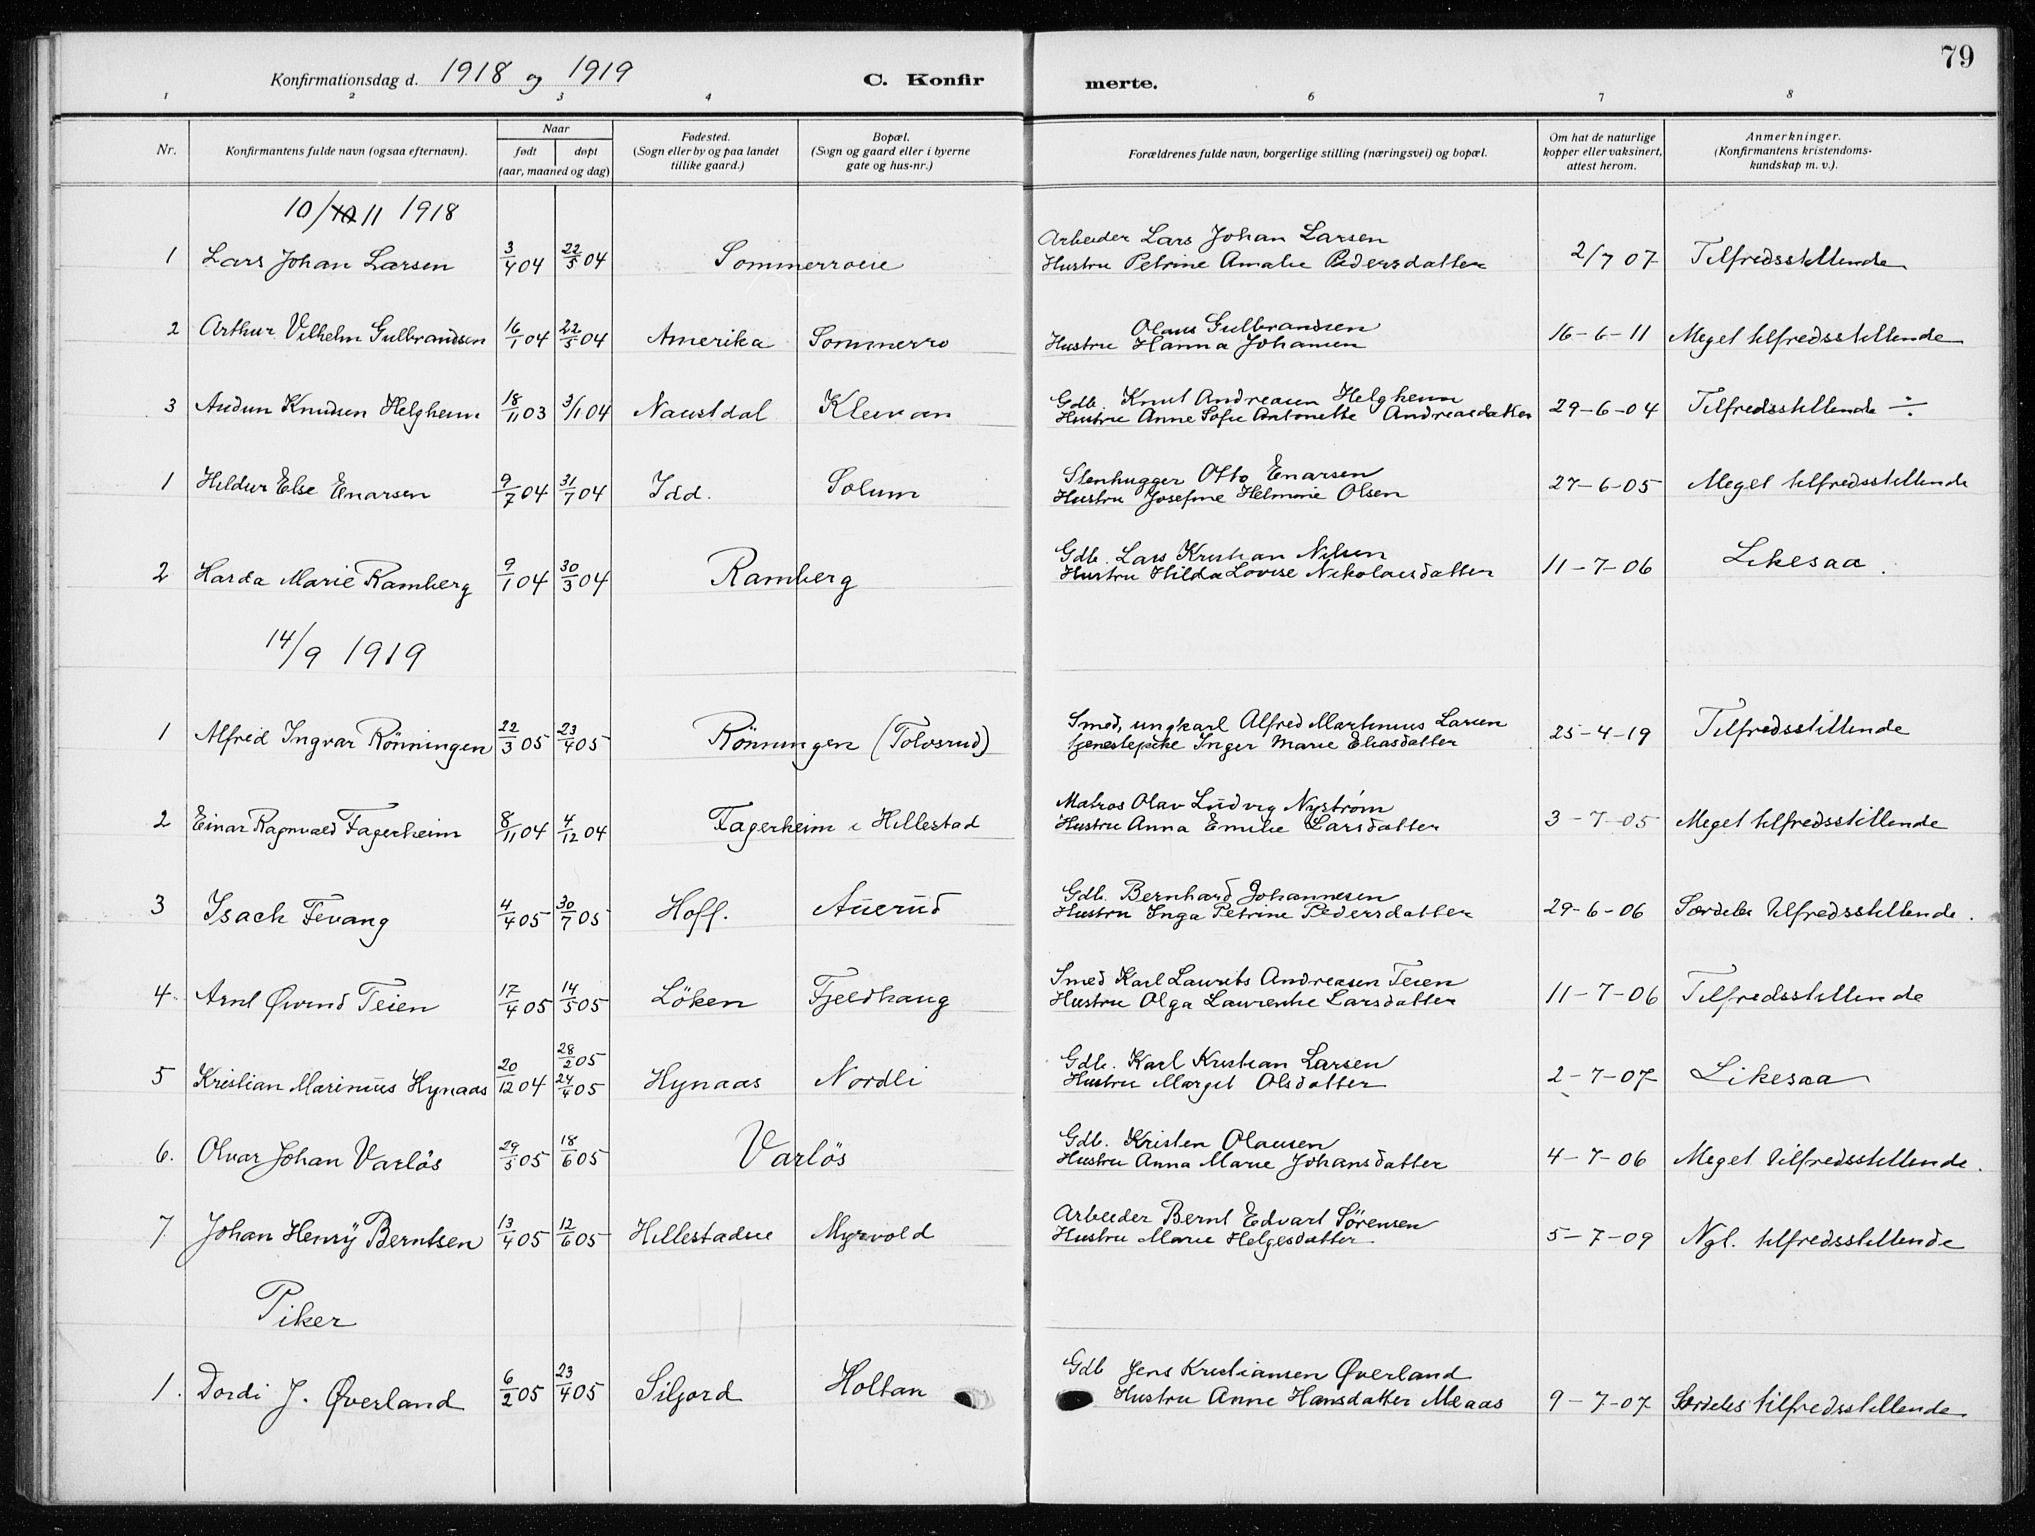 79
Konfirmationsdag d. 1918 og 1919 C. Konfir merte.
1 2 3 4 6 7 8
Nr. Konfirmantens fulde navn (ogsaa efternavn). Naar født døpt (aar, maaned og dag) Fødested. (Sogn eller by og paa landet tillike gaard.) Bopæl. (Sogn og gaard eller i byerne gate og hus-nr.) Forældrenes fulde navn, borgerlige stilling (næringsvei) og bopæl. Om hat de naturlige kopper eller vaksinert, attest herom. Anmerkninger. (Konfirmantens kristendoms-kundskap m. v.).
10/11 1918
Arbeider Lars Johan Larsen
1 Lars Johan Larsen 3/4 04 22/5 04 Sommerroeie Hustru Petrine Amalie Pedersdatter 2/7 07 Tilfredsstillende
Olaus Gulbrandsen
2 Arthur Vilhelm Gulbrandsen 16/1 04 22/5 04 Amerika Sommerro Hustru Hanna Johansen 16-6-11 Meget tilfredsstillende
Gdb. Knut Andreasen Helgheim
3 Audun Knudsen Helgheim 18/11 03 3/1 04 Naustdal Klevan Hustru Anne Sofie Antonette Andreasdatter 29-6-04 Tilfredsstillende ÷
Stenhugger Otto Enarsen
1 Hildur Else Enarsen 9/7 04 31/7 04 Idd. Solum Hustru Josefine Helmine Olsen 27-6-05 Meget tilfredsstillende
Gdb. Lars Kristian Nilsen
2 Harda Marie Ramberg 9/1 04 30/3 04 Ramberg Hustru Hilda Lovise Nikolaisdatter 11-7-06 Likesaa.
14/9 1919
Smed, ungkarl Alfred Martinius Larsen
1 Alfred Ingvar Rönningen 22/3 05 23/4 05 Rönningen (Tolvsrud) tjenestepike Inger Marie Eliasdatter 25-4-19 Tilfredsstillende
Matros Olav Ludvig Nystrøm
2 Einar Ragnvald Fagerheim 8/11 04 4/12 04 Fagerheim i Hillestad Hustru Anna Emilie Larsdatter 3-7-05 Meget tilfredsstillende
Gdb. Bernhard Johannesen
3 Isach Fevang 4/4 05 30/7 05 Hoff. Auerud Hustru Inga Petrine Pedersdatter 29-6-06 Særdeles tilfredsstillende.
Smed Karl Laurits Andreasen Teien
4 Arnt Øivind Teien 17/4 05 14/5 05 Löken Fjeldhaug Hustru Olga Laurentie Larsdatter 11-7-06 Tilfredsstillende
28/2 05
Gdb. Karl Kristian Larsen
5 Kristian Marinius Hynaas 20/12 04 24/4 05 Hynaas Nordli Hustru Marget Olsdatter 2-7-07 Likesaa
Gdb. Kristen Olausen
6. Olvar Johan Varlös 29/5 05 18/6 05 Varlös Hustru Anna Marie Johansdatter 4-7-06 Meget tilfredsstillende.
Arbeider Bernt Edvart Sørensen
7 Johan Henry Berntsen 13/4 05 12/6 05 Hillestadeie Myrvold Hustru Marie Helgesdatter 5-7-09 Ngl. tilfredsstillende
Piker
Gdb Jens Kristiansen Øverland
1. Dordi J. Øverland 6/2 05 23/4 05 Siljord Holtan Hustru Anne Hansdatter Meaas 9-7-07 Særdeles tilfredsstillende